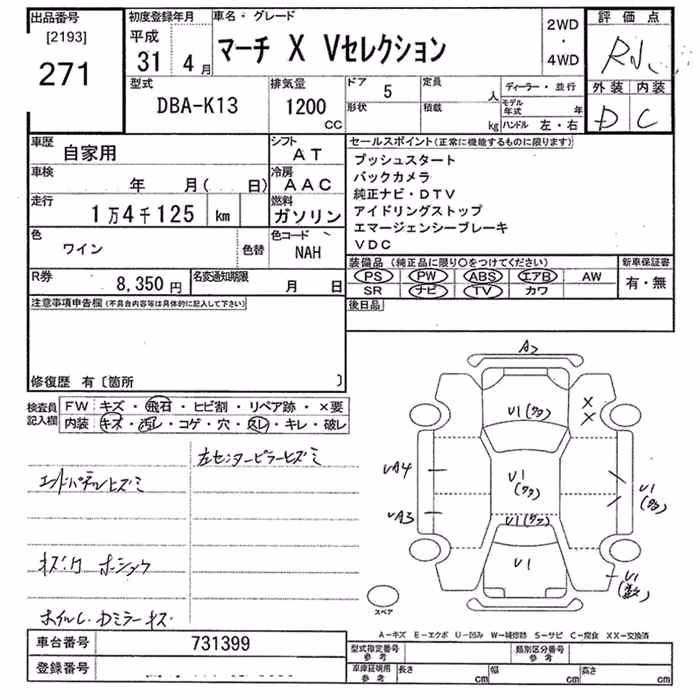 出品番号
[2193]
271
初度登録年月
平成
31 4月
車名・グレード
マーチ X Vセレクション
2WD
・
4WD
評価点
外装 内装
D C
型式
DBA-K13
排気量
1200
CC
ドア
5
形状
定員
人
積載
kg
ディーラー・並行
モデル年式 年
ハンドル 左・右
車歴
自家用
シフト
AT
車検
年 月( 日)
冷房
AAC
走行
1万4千125 km
燃料
ガソリン
色
ワイン
色替
色コード
NAH
R券
8,350円
名変通知期限
月 日
セールスポイント(正常に機能するものに限ります)
プッシュスタート
バックカメラ
純正ナビ・DTV
アイドリングストップ
エマージェンシーブレーキ
VDC
装備品(純正品に限り○をつけてください)
PS PW ABS エアB AW
SR ナビ TV カワ
新車保証書
有・無
後日品
注意事項申告欄(不具合内容等は具体的に記入して下さい)
修復歴 有〔箇所 〕
検査員記入欄
FW キズ・飛石・ヒビ割・リペア跡・×要
内装 キズ・汚レ・コゲ・穴・スレ・キレ・破レ
左センターピラーヒズミ
エンドパネルヒズミ
ホイル、ドミラーキズ
A2
U1(タタ)
X
X
UA4
U1
(タタ)
U1
(タタ)
UA3
U1(タタ)
U1
U1
スペア
A-キズ E-エクボ U-凹み W-補修跡 S-サビ C-腐食 XX-交換済
車台番号
731399
登録番号
型式指定番号
参考
類別区分番号
参考
車庫証明用
参考
長さ cm
幅 cm
高さ cm